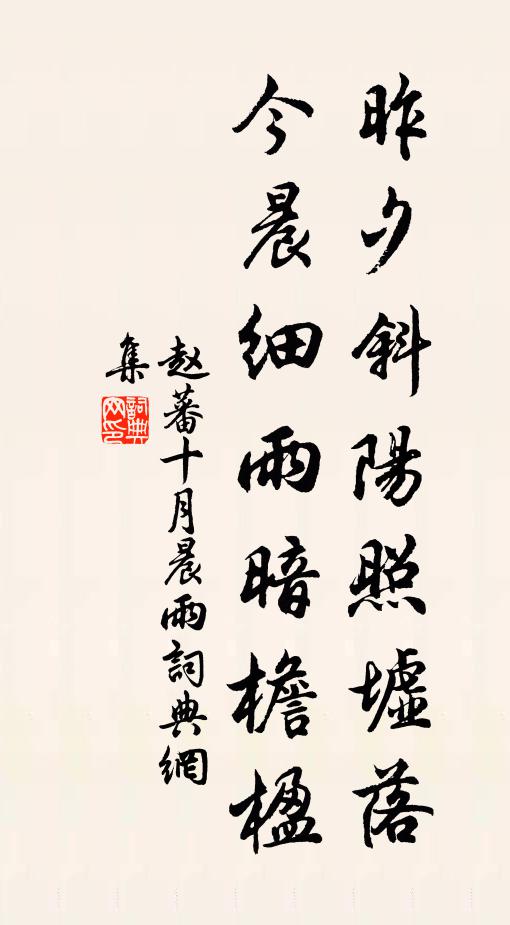 昨夕斜陽照墟落
今晨細雨暗檐楹
赵蕃十月晨雨詞典網
集
詞典網印